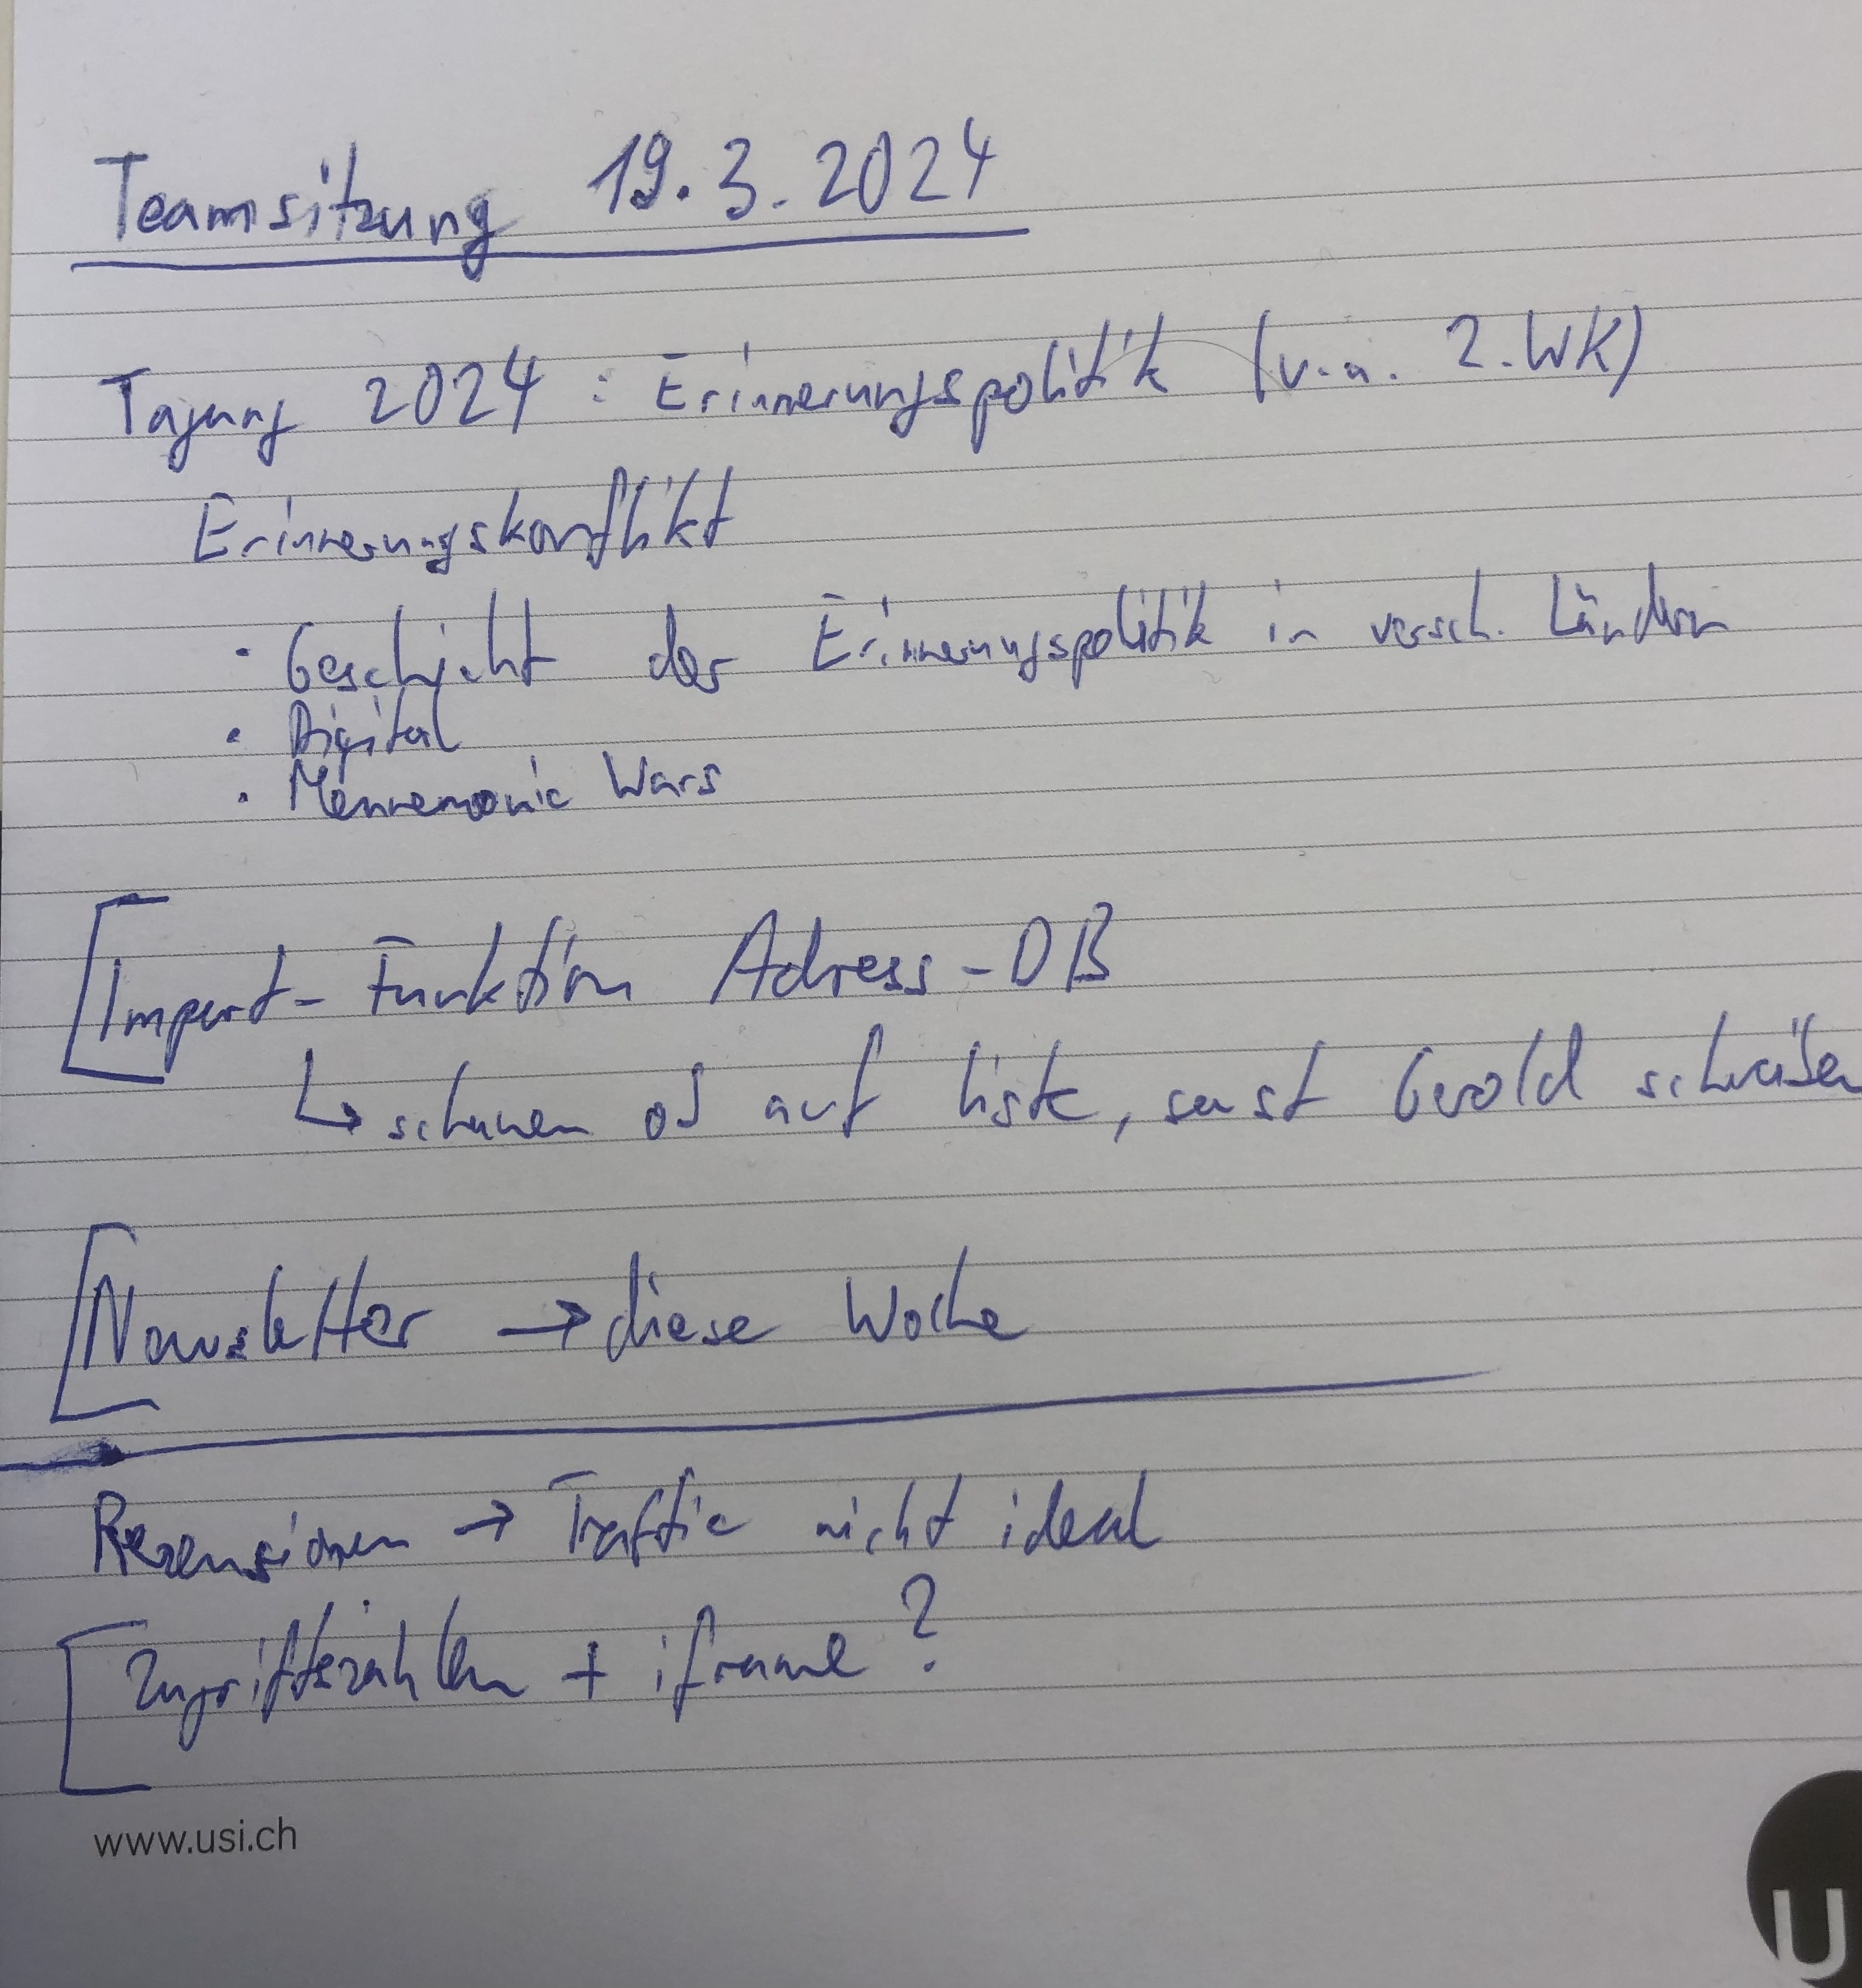 Teamsitzung 19.3.2024
Tagung 2024: Erinnerungspolitik (v.a. 2.WK)
Erinnerungskonflikt
· Geschicht der Erinnerungspolitik in versch. Ländern
· Digital
· Mennemonic Wars
Import-Funktion Adress-DB
↳ schauen ob auf Liste, sonst Gerold schreiben
Newsletter → diese Woche
Rezensionen → Traffic nicht ideal
Zugriffszahlen + iframe?
www.usi.ch
U